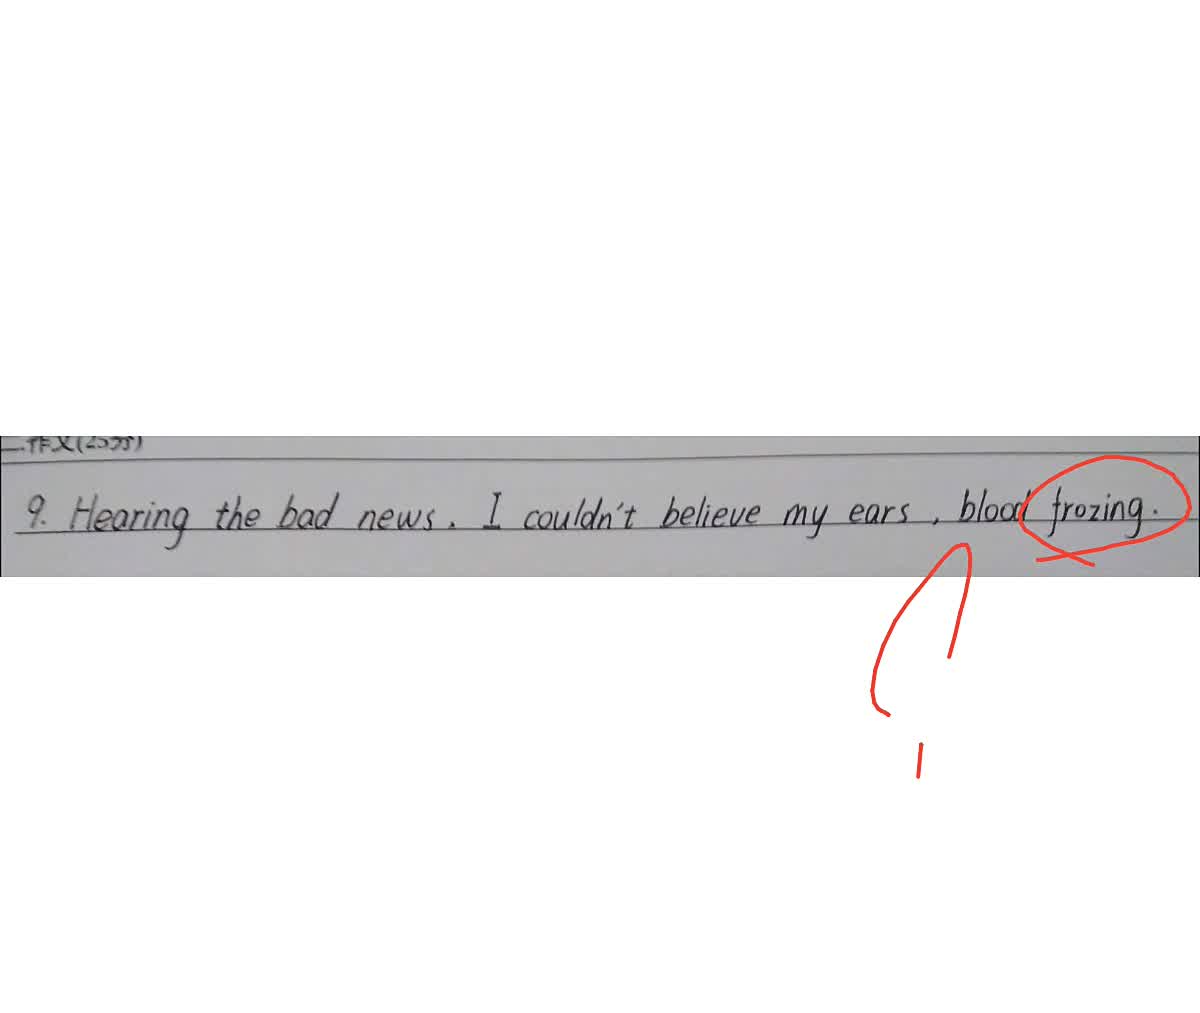 二.作文(25分)
9. Hearing the bad news. I couldn't believe my ears , blood frozing.